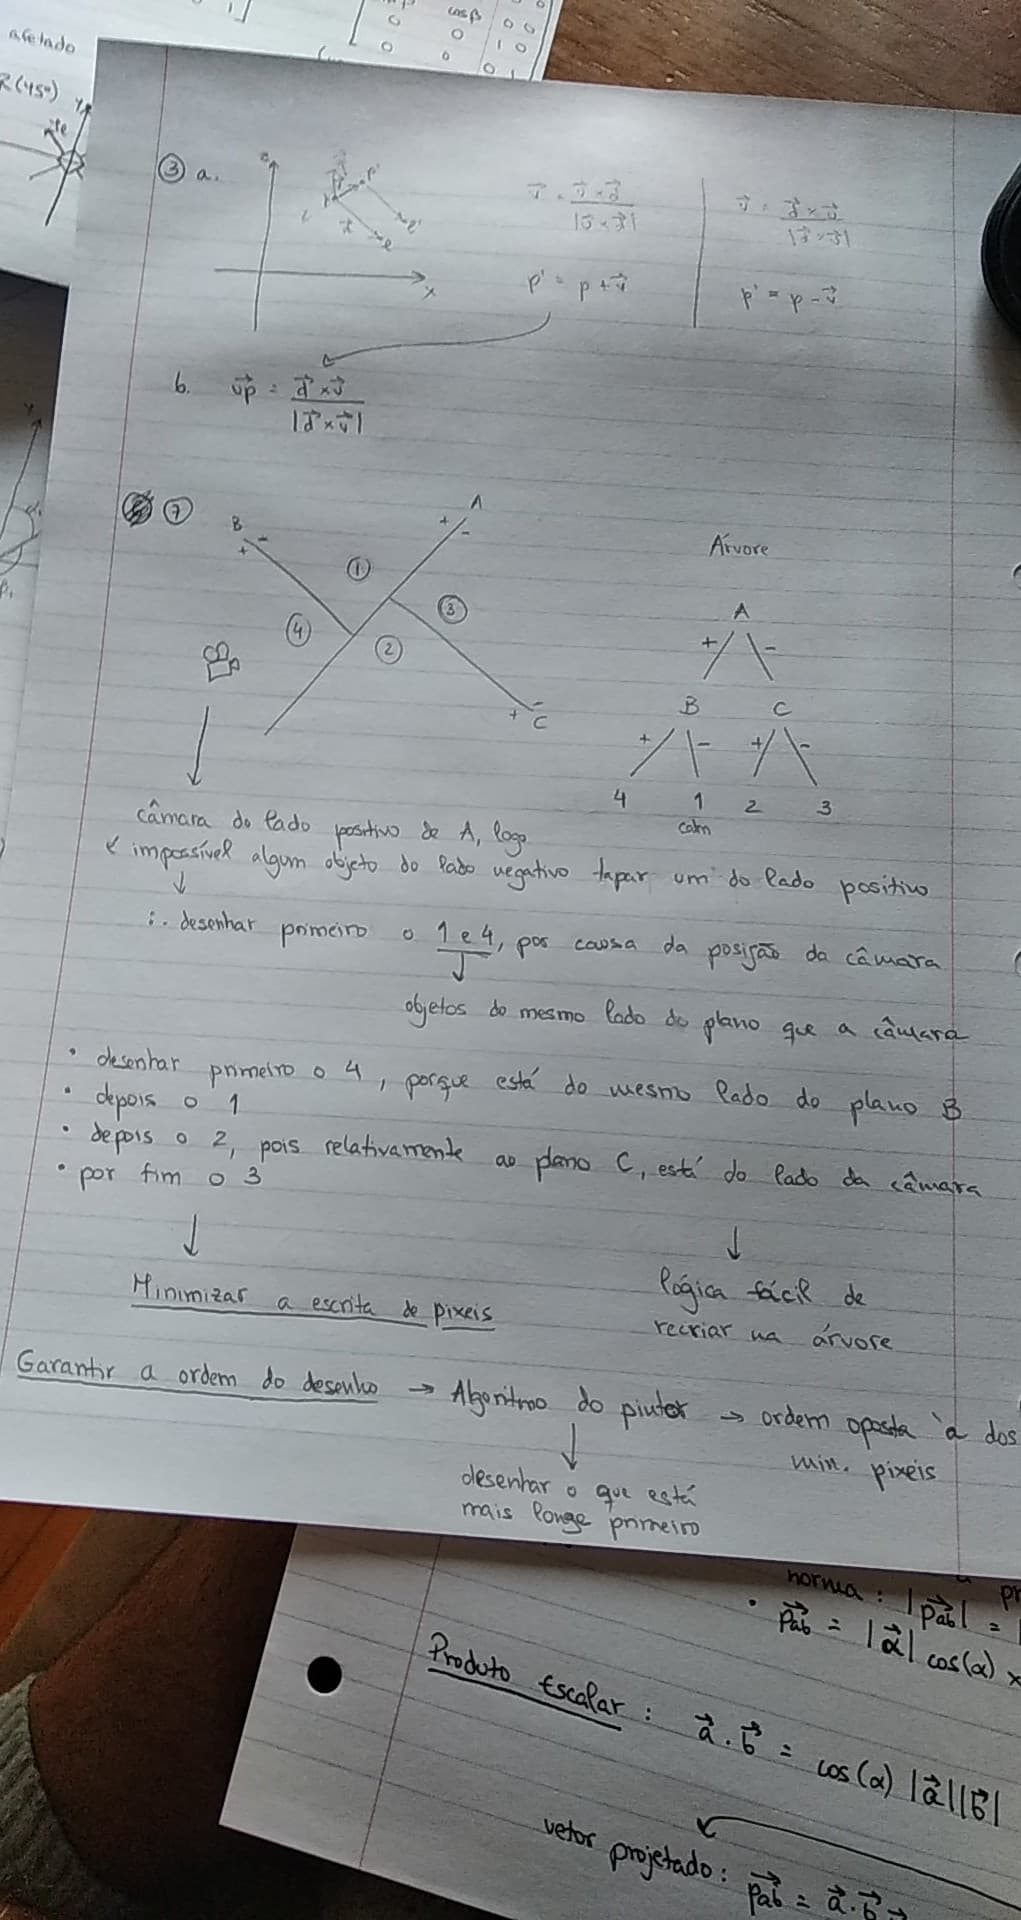 cosβ 0 0
0 0 1 0
0 0 0 1
afetado
R(45°)
③ a.
z
x
p'
p' = p + v⃗
p' = p - v⃗
b. up⃗ = d⃗ × v⃗
|d⃗ × v⃗|
⑦
B
+ -
A
+ -
①
③
④
②
+ -
C
Árvore
A
+ -
B C
+ - + -
4 1 2 3
cam
câmara do lado positivo de A, logo
é impossível algum objeto do lado negativo tapar um do lado positivo
∴ desenhar primeiro o 1 e 4, por causa da posição da câmara
objetos do mesmo lado do plano que a câmara
• desenhar primeiro o 4, porque está do mesmo lado do plano B
• depois o 1
• depois o 2, pois relativamente ao plano C, está do lado da câmara
• por fim o 3
Minimizar a escrita de pixeis
lógica fácil de
recriar na árvore
Garantir a ordem do desenho → Algoritmo do pintor → ordem oposta à dos
min. pixeis
desenhar o que está
mais longe primeiro
norma : |pab⃗| =
• pab⃗ = |a⃗| cos(α) ×
Produto Escalar : a⃗ . b⃗ = cos(α) |a⃗||b⃗|
vetor projetado : pab⃗ = a⃗ . b⃗